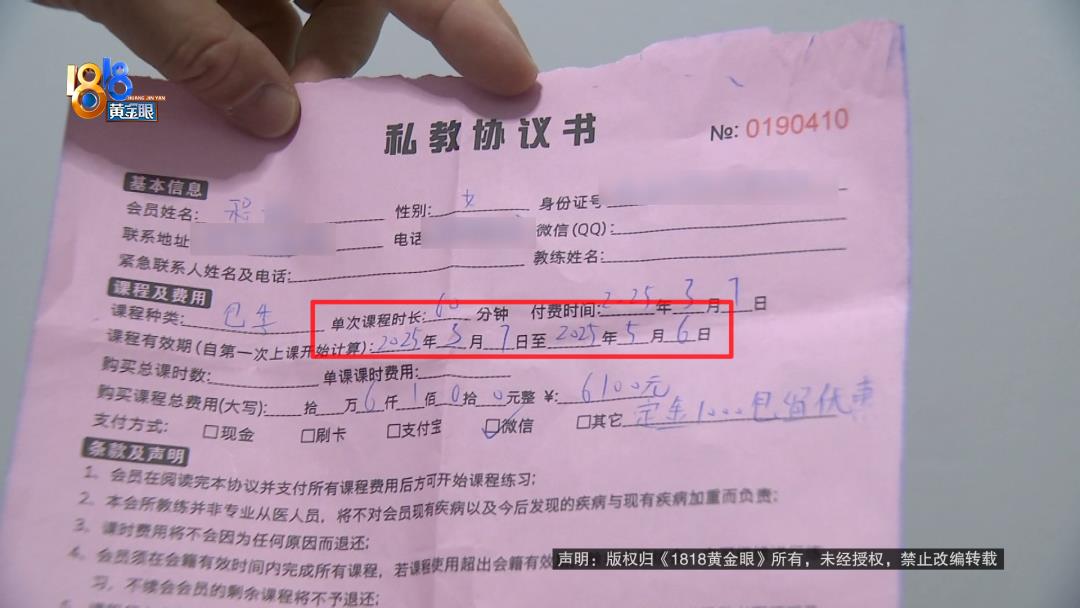 1818
HUANG JIN YAN
黄金眼
私教协议书
№: 0190410
基本信息
会员姓名: 性别: 女 身份证号
联系地址 电话 微信(QQ):
紧急联系人姓名及电话: 教练姓名:
课程及费用
课程种类: 包年 单次课程时长: 60 分钟 付费时间: 2025年3月7日
课程有效期(自第一次上课开始计算): 2025年3月7日至2025年5月6日
购买总课时数: 单课课时费用:
购买课程总费用(大写): 拾 万6仟1佰0拾0元整 ¥: 6100元
支付方式: □现金 □刷卡 □支付宝 ☑微信 □其它 定金1000包留优惠
条款及声明
1、会员在阅读完本协议并支付所有课程费用后方可开始课程练习;
2、本会所教练并非专业从医人员，将不对会员现有疾病以及今后发现的疾病与现有疾病加重而负责;
3、课时费用将不会因为任何原因而退还;
4、会员须在会籍有效时间内完成所有课程，若课程使用超出会籍有效
习，不续会会员的剩余课程将不予退还;
声明：版权归《1818黄金眼》所有，未经授权，禁止改编转载